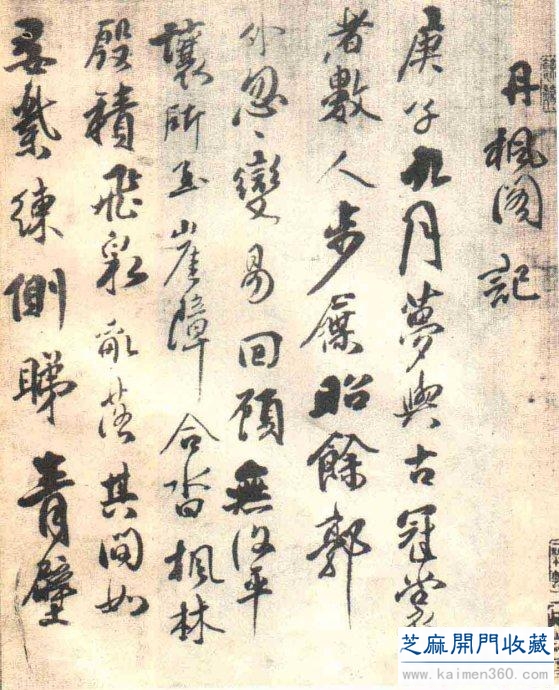 丹枫阁記
庚子九月夢與古冠裳
者數人步屧昭餘郭
外忽〻變易回顧無復平
壤所至崖障合沓楓林
殷積飛泉亂落其間如
縈練側睇青壁
芝麻開門收藏
www.kaimen360.com